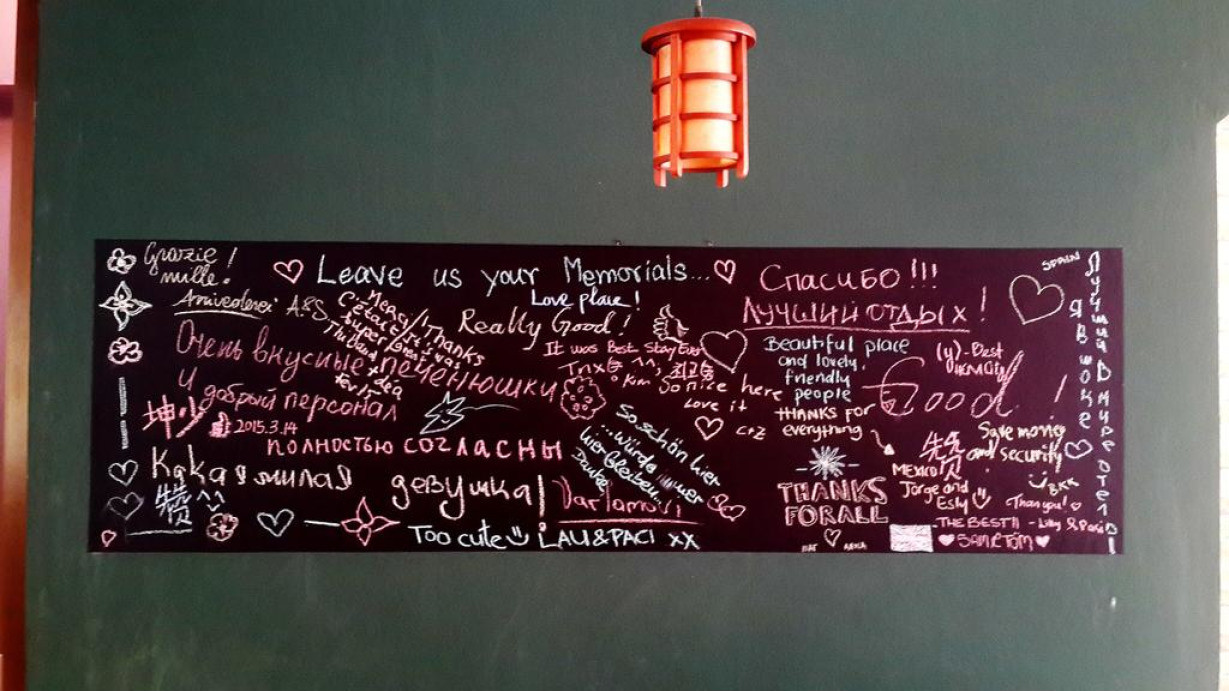 Grazie!
mille.
Arrivederci A&S
Leave us your Memorials...
Love place!
Really Good!
Merci!
C'était
super
Thanks
Очень вкусные печенюшки
и добрый персонал
2015.3.14
полностью согласны
Какая милая девушка!
It was Best Stay Ever
So nice here
Love it
C+Z
So schön hier
...würde
hier bleiben.
Danke
Varlamovi
Too cute
LAU&PACI XX
Спасибо!!!
ЛУЧШИЙ ОТДЫХ!
Beautiful place
and lovely,
friendly
people
THANKS FOR
everything
THANKS
FOR ALL
Good!
Save money
and security
MEXICO
Jorge and
Esty
BKK
Thank you!
THE BEST!!
SAM & TOM
SPAIN
Я в шоке
Лучший в мире отель